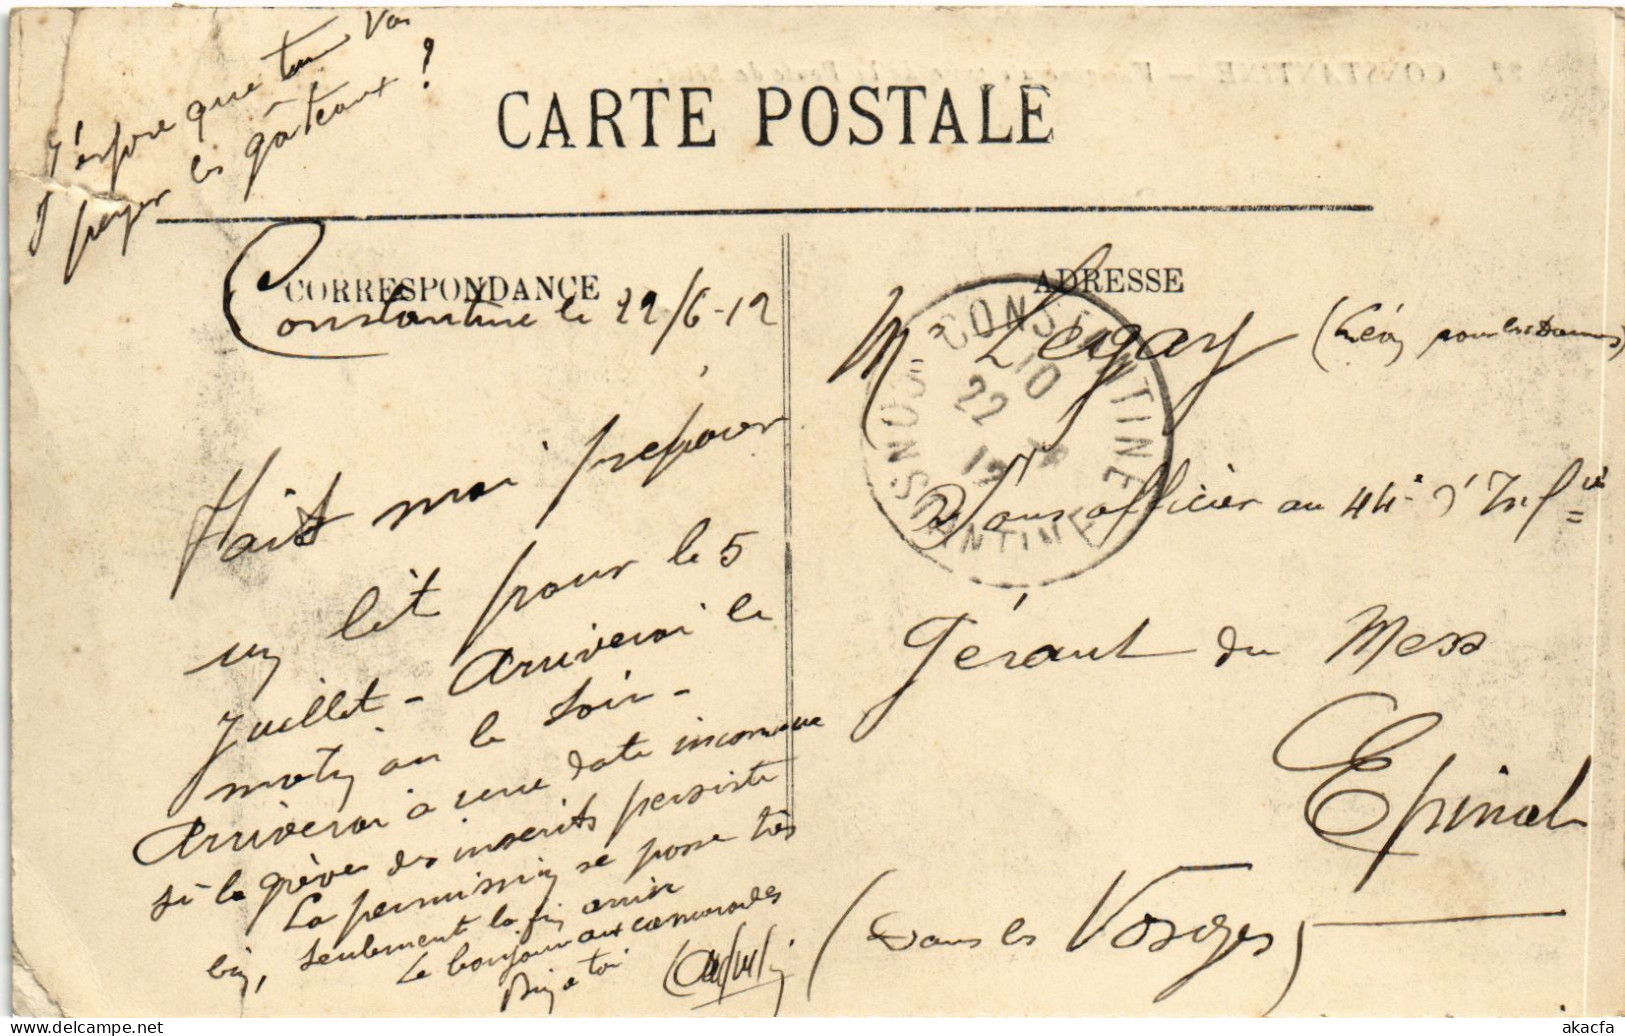 J'espère que tu vas
payer les gâteaux ?
CARTE POSTALE
CORRESPONDANCE
Constantine le 22/6-12
Fais moi préparer
un lit pour le 5
Juillet - Arriverai le
matin ou le soir -
Arriverai à une date inconnue
si la grève des inscrits persiste
La permission se passe très
bien, seulement la fin arrive
Le bonjour aux camarades
Bien à toi
ADRESSE
Mr Legay (Léon pour les Dames)
Sous officier au 44e d'Infie
Gérant du Mess
Epinal
(Dans les Vosges)
CONSTANTINE
22 12
CONSTANTINE
delcampe.net
akacfa